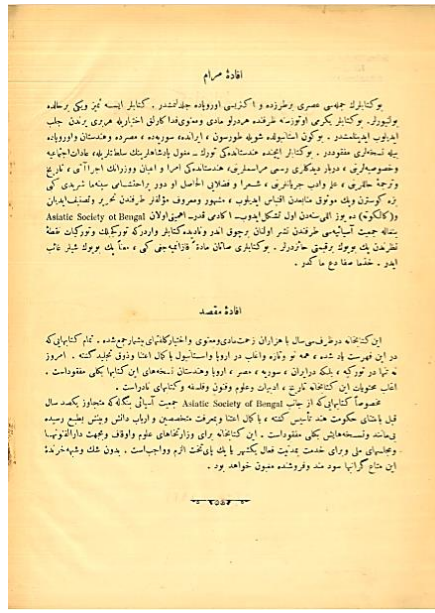 افادهٔ مرام
بو كتابلرك جمله‌سی عصری برطرزده و اكثریسی اوروپاده جلدلنمشدر . كتابلر ایسه تمیز ویكی برحالده
بولنیورلر. بوكتابلر یكرمی اوتوز سنه ظرفنده هردرلو مادی ومعنوی فداكارلق اختیاریله هربری بریردن جلب
ایدیلوب ایدینلمشدر . بوكون استانبولده شویله طورسون ، ایرانده، سوریه‌ده ، مصرده وهندستان واوروپاده
بیله نسخه‌لری مفقوددر . بوكتابلر ایچنده هندستانده‌كی تورك ـ مغول پادشاهلرینك سلطنتلریله، عادات اجتماعیه
وخصوصیه‌لری ، دربار دیدكلری رسمی مراسملری، هندستانده‌كی امرا و اعیان ووزرانك اجراآتی ، تاریخ
وترجمهٔ حاللری ، علم وادب جریانلری ، شعرا و فضلایی الحاصل او دور پراحتشامی سینما شریدی كبی
كوزه كوسترن وپك موثوق منابعدن اقتباس ایدیلوب ، مشهور ومعروف مؤلفلر طرفندن تحریر وتصنیف ایدیلن
و(كالكوته) ده یوز اللی سنه‌دن اول تشكل ایدوب Asiatic Society of Bengal
بنغاله جمعیت آسیائیه‌سی طرفندن نشر اولنان برچوق اندر ونادیده كتابلر واردركه توركلك وتوركیات نقطهٔ
نظرندن پك بویوك برقیمتی حائزدرلر. بو كتابلری صاتان مادةً غائب ایتسه‌بیله معناً پك بویوك شیلر غائب
ایدر . خذما صفا دع ما كدر .
افادهٔ مقصد
این كتابخانه درظرف سی سال با هزاران زحمت مادی ومعنوی واختیار كلفتهای بیشمار جمع شده . تمام كتابهایی كه
در این فهرست یاد شده ، همه نو وتازه واغلب در اروپا واستانبول با كمال اعتنا وذوق تجلید گشته . امروز
نه تنها در توركیه ، بلكه درایران ، سوریه ، مصر ، اروپا وهندستان نسخه‌های این كتابها بكلی مفقود است .
اغلب محتویات این كتابخانه تاریخ ، ادبیات وعلوم وفنون وفلسفه وكتابهای نادر است .
مخصوصاً كتابهایی كه از جانب Asiatic Society of Bengal جمعیت آسیائی بنگاله كه متجاوز یكصد سال
قبل باعتنای حكومت هند تأسیس گشته ، با كمال اعتنا وبمعرفت متخصصین و ارباب دانش وبینش بطبع رسیده
بی‌مانند ونسخه‌هایش بكلی مفقود است . این كتابخانه برای وزارتخانهای علوم واوقاف وبجهت دارالفنونها
ومجلسهای ملی وبرای خدمت بمدنیت فعال یكشهر یا یك پای تخت الزم وواجب است . بدون شك وشبهه خرندهٔ
این متاع گرانبها سود مند وفروشنده مغبون خواهد بود .